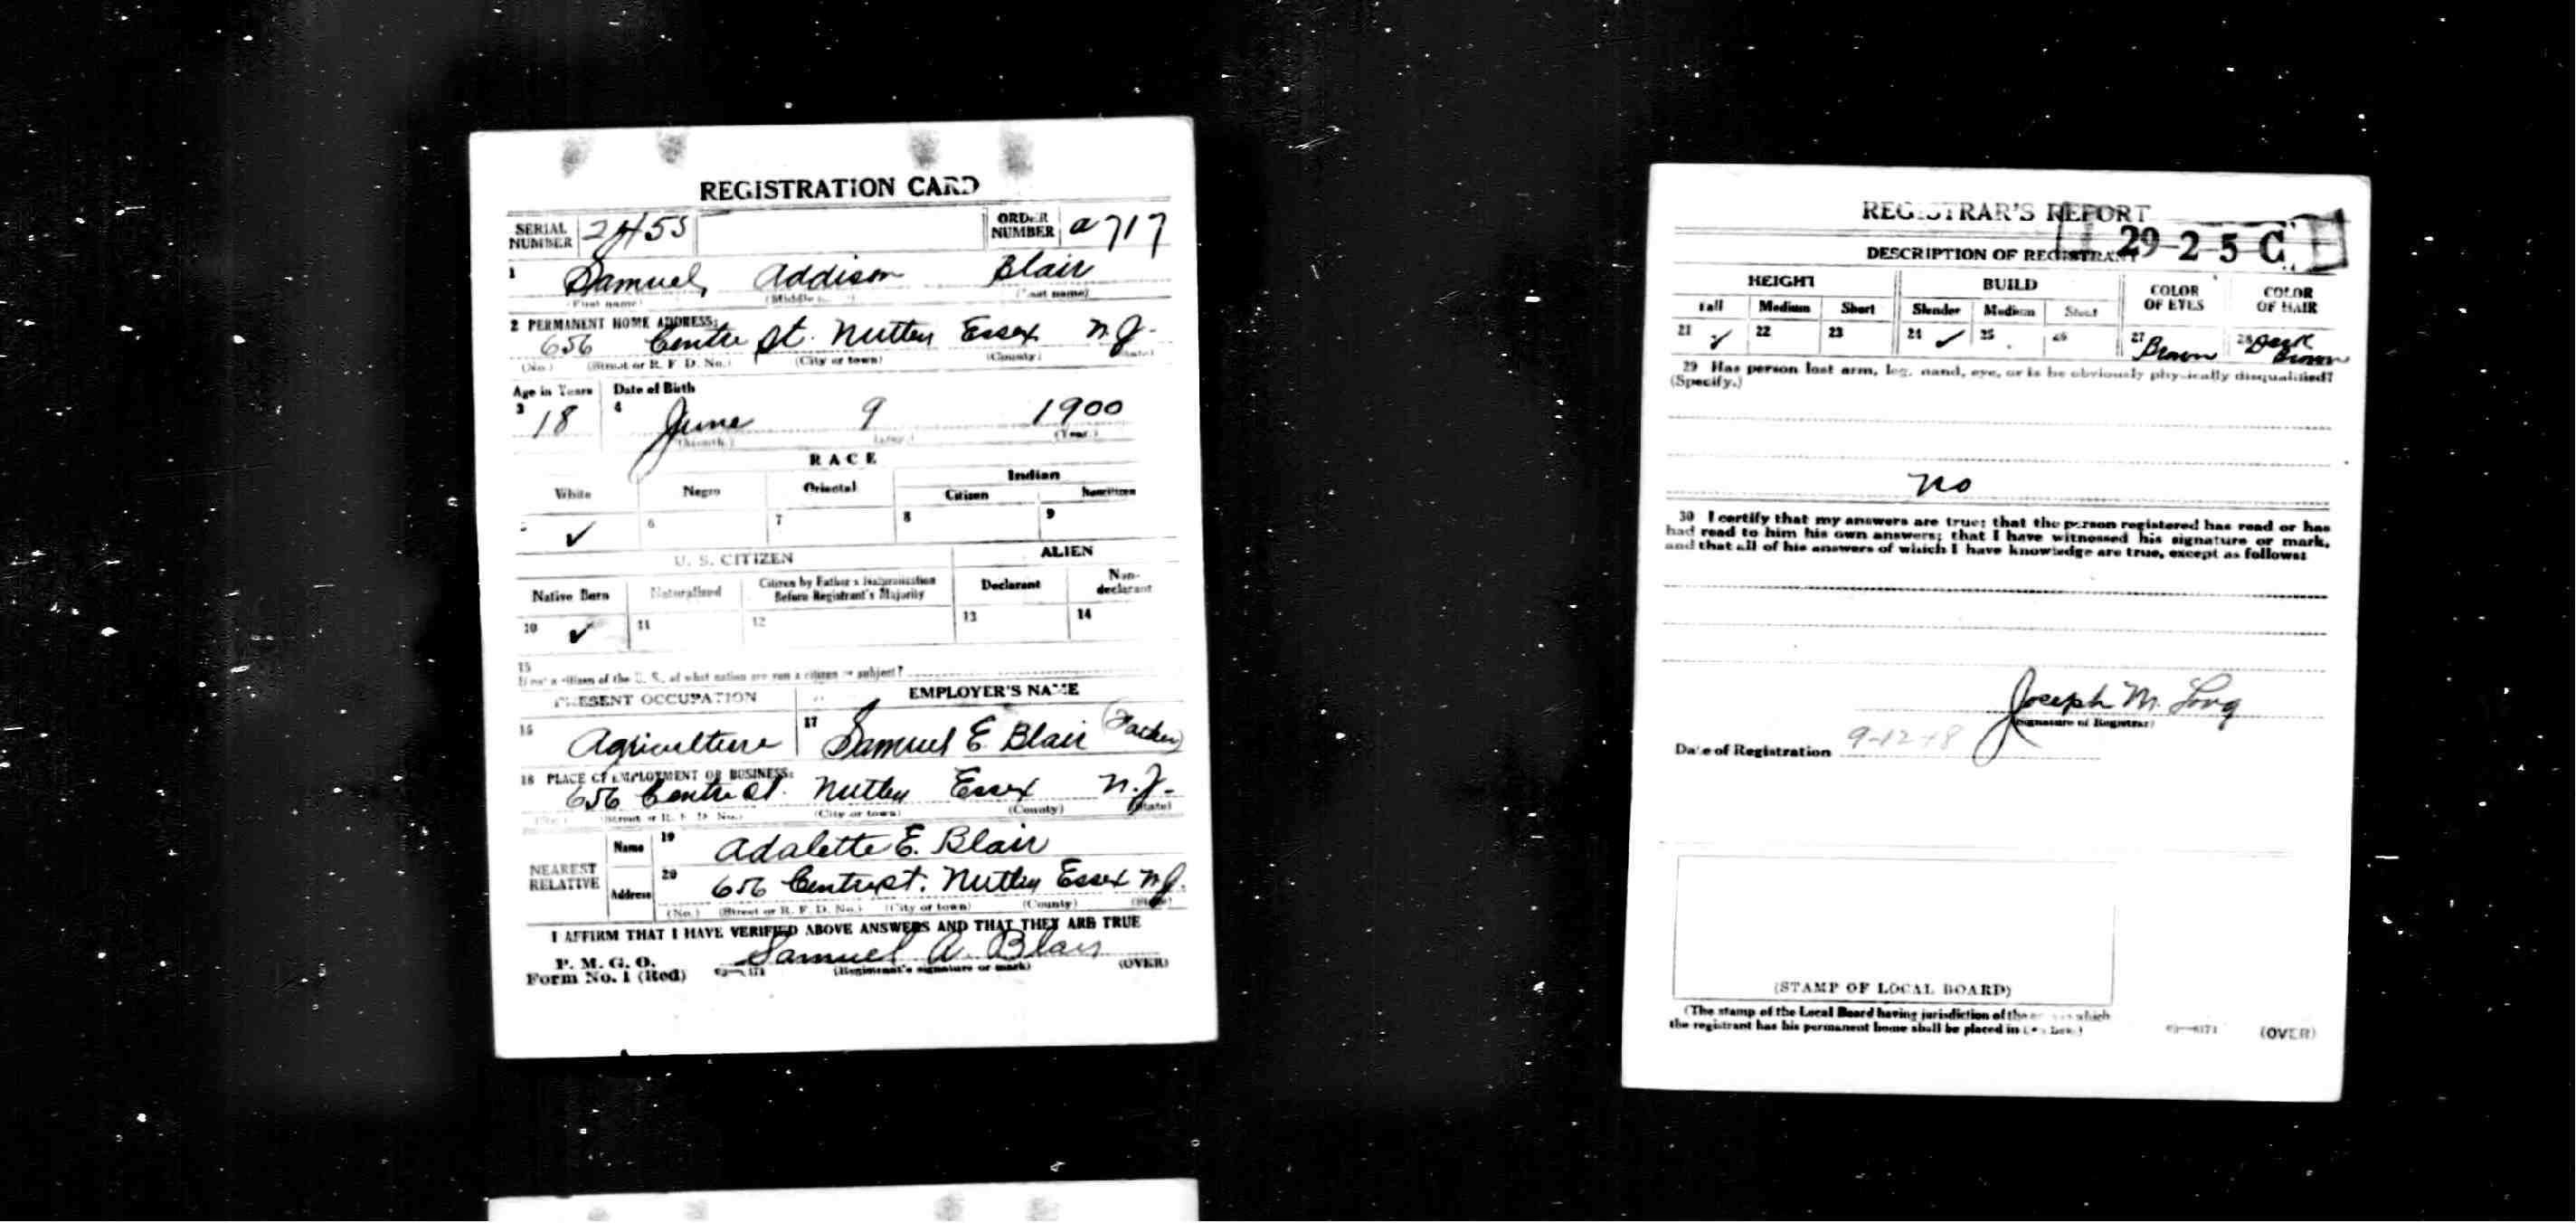 REGISTRATION CARD
SERIAL NUMBER 2455 ORDER NUMBER a717
1 Samuel Addison Blair
(First name) (Middle name) (Last name)
2 PERMANENT HOME ADDRESS:
656 Centre St. Nutley Essex N.J.
(No.) (Street or R. F. D. No.) (City or town) (County) (State)
Age in Years Date of Birth
3 18 4 June 9 1900
(Month.) (Day.) (Year.)
RACE
White Negro Oriental Indian
Citizen Noncitizen
5 ✓ 6 7 8 9
U. S. CITIZEN ALIEN
Native Born Naturalized Citizen by Father's Naturalization Before Registrant's Majority Declarant Non-declarant
10 ✓ 11 12 13 14
15
If not a citizen of the U. S., of what nation are you a citizen or subject?
PRESENT OCCUPATION EMPLOYER'S NAME
16 Agriculture 17 Samuel E. Blair (Father)
18 PLACE OF EMPLOYMENT OR BUSINESS:
656 Centre St. Nutley Essex N.J.
(No.) (Street or R. F. D. No.) (City or town) (County) (State)
NEAREST RELATIVE
Name 19 Adalette E. Blair
Address 20 656 Centre St. Nutley Essex N.J.
(No.) (Street or R. F. D. No.) (City or town) (County) (State)
I AFFIRM THAT I HAVE VERIFIED ABOVE ANSWERS AND THAT THEY ARE TRUE
P. M. G. O.
Form No. 1 (Red) Samuel A. Blair
(Registrant's signature or mark) (OVER)
REGISTRAR'S REPORT
29-2-5 C
DESCRIPTION OF REGISTRANT
HEIGHT BUILD COLOR OF EYES COLOR OF HAIR
Tall Medium Short Slender Medium Stout
21 ✓ 22 23 24 ✓ 25 26 27 Brown 28 Dark Brown
29 Has person lost arm, leg, hand, eye, or is he obviously physically disqualified?
(Specify.)
No
30 I certify that my answers are true; that the person registered has read or has
had read to him his own answers; that I have witnessed his signature or mark,
and that all of his answers of which I have knowledge are true, except as follows:
Joseph M. Long
(Signature of Registrar)
Date of Registration 9-12-18
(STAMP OF LOCAL BOARD)
(The stamp of the Local Board having jurisdiction of the area in which
the registrant has his permanent home shall be placed in this box.)
(OVER)